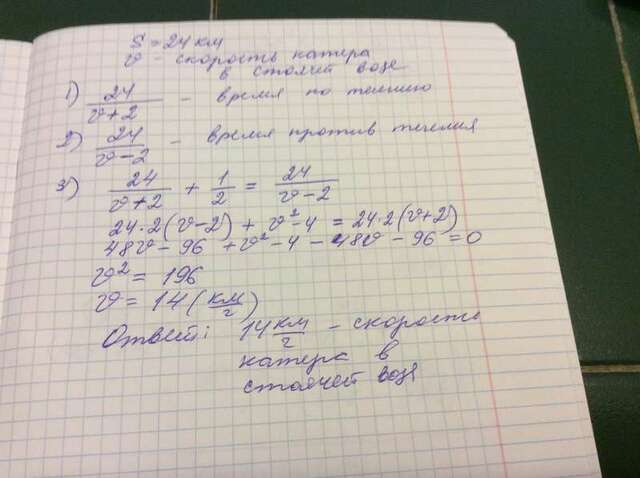 S = 24 км
v - скорость катера
в стоячей воде
1) 24/(v+2) - время по течению
2) 24/(v-2) - время против течения
3) 24/(v+2) + 1/2 = 24/(v-2)
24·2(v-2) + v²-4 = 24·2(v+2)
48v - 96 + v² - 4 - 48v - 96 = 0
v² = 196
v = 14 (км/ч)
Ответ: 14 км/ч - скорость
катера в
стоячей воде